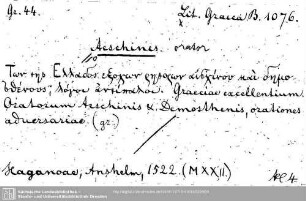 Gr. 44.
Lit. Graeca B. 1076.
Aeschines. orator
Των της Ελλαδος εξοχων ρητορων αισχινου και δημο-
σθενους, λογοι αντιπαλοι. Graeciae excellentium
Oratorum Aeschinis & Demosthenis, orationes
adversariae. (gr.)
Haganoae, Anshelm, 1522. (MXXII.)
kl 4
Sächsische Landesbibliothek -
Staats- und Universitätsbibliothek Dresden